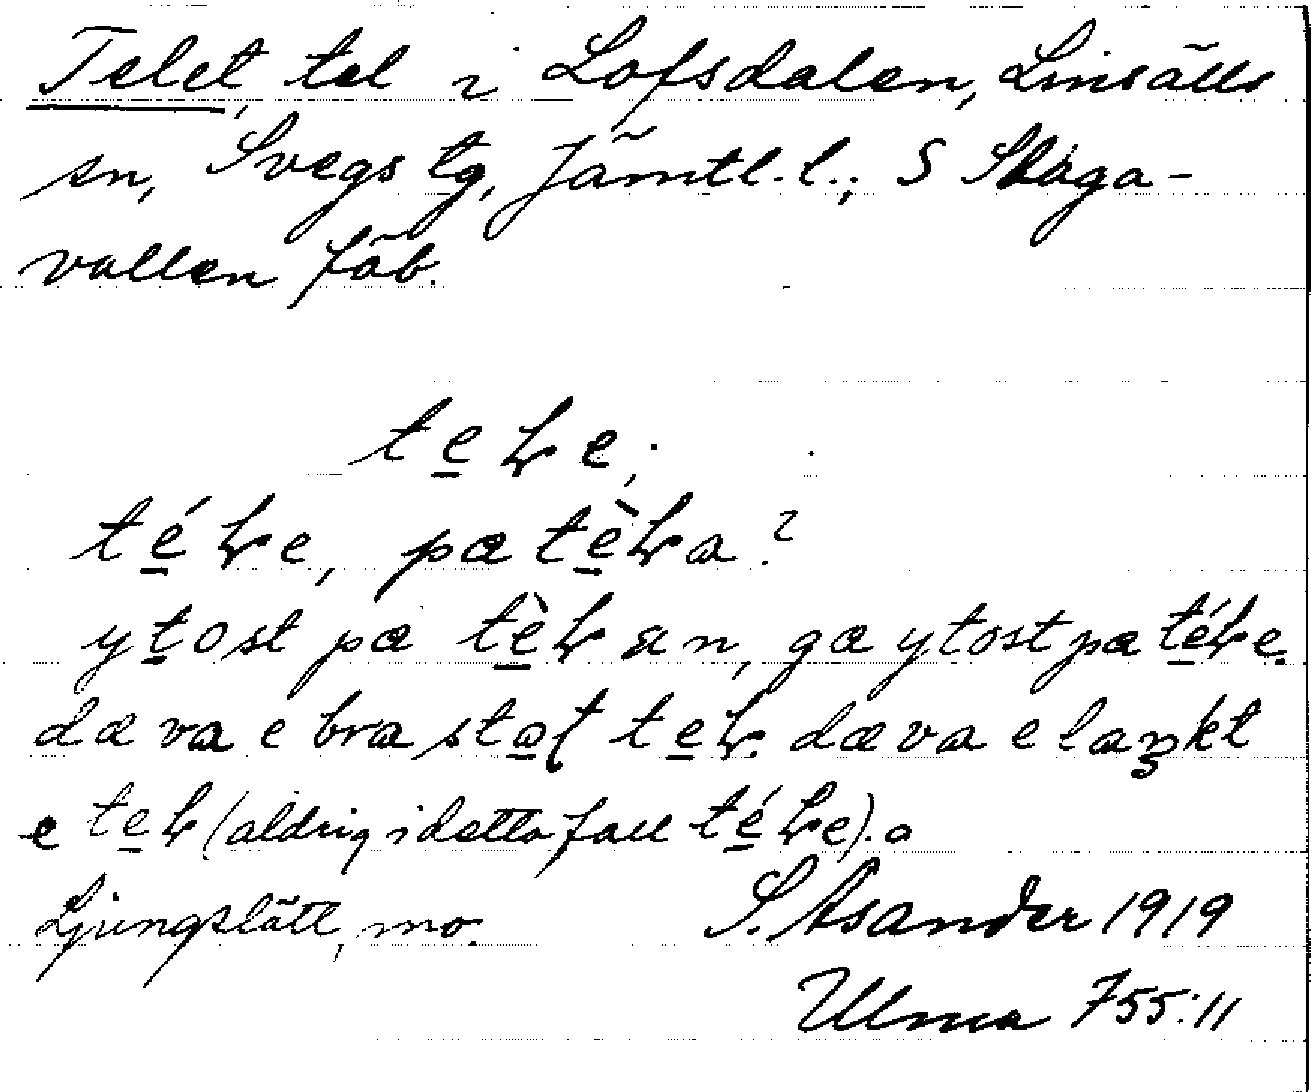 Telet, tel i Lofsdalen, Linsälls
sn, Svegs tg, Jämtl. l.; S Skåga-
vallen fäb.
teɽe,
téɽe, pa tèɽa?
ytost pa tèɽ an, ga ytost pa téɽe.
da va e bra stat teɽ. da va e laŋkt
e teɽ (aldrig i detta fall téɽe). o
Ljungslätt, mo.
S. Åsander 1919
Ulma 755:11